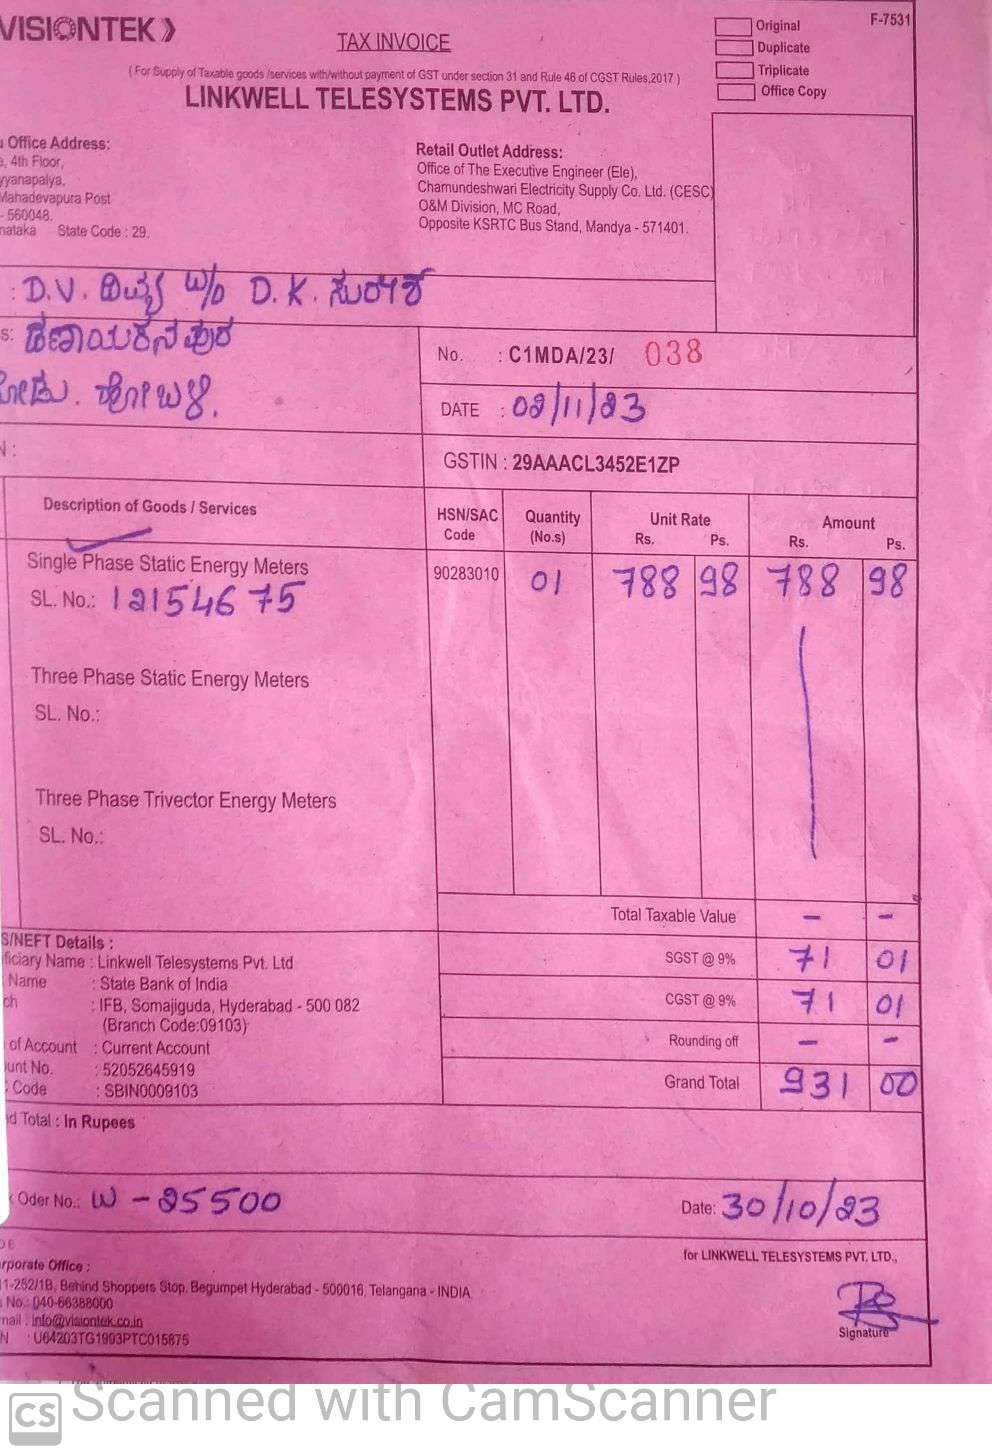 VISIONTEK
TAX INVOICE
Original
Duplicate
Triplicate
Office Copy
F-7531
( For Supply of Taxable goods /services with/without payment of GST under section 31 and Rule 46 of CGST Rules,2017 )
LINKWELL TELESYSTEMS PVT. LTD.
Office Address:
4th Floor,
yyanapalya,
Mahadevapura Post
- 560048.
nataka State Code : 29.
Retail Outlet Address:
Office of The Executive Engineer (Ele),
Chamundeshwari Electricity Supply Co. Ltd. (CESC)
O&M Division, MC Road,
Opposite KSRTC Bus Stand, Mandya - 571401.
: D.V. ದಿವ್ಯ W/o D.K. ಸುರೇಶ
s: ಹಣಾಯಕನಪುರ
ಹೋಬಳಿ.
No. : C1MDA/23/ 038
DATE : 02/11/23
N :
GSTIN : 29AAACL3452E1ZP
Description of Goods / Services
HSN/SAC Code
Quantity (No.s)
Unit Rate Rs. Ps.
Amount Rs. Ps.
Single Phase Static Energy Meters 90283010 01 788 98 788 98
SL. No.: 12154675
Three Phase Static Energy Meters
SL. No.:
Three Phase Trivector Energy Meters
SL. No.:
Total Taxable Value - -
SGST @ 9% 71 01
CGST @ 9% 71 01
Rounding off - -
Grand Total 931 00
S/NEFT Details :
ficiary Name : Linkwell Telesystems Pvt. Ltd
Name : State Bank of India
ch : IFB, Somajiguda, Hyderabad - 500 082
(Branch Code:09103)
of Account : Current Account
unt No. : 52052645919
Code : SBIN0009103
d Total : In Rupees
Oder No.: W - 25500
Date: 30/10/23
for LINKWELL TELESYSTEMS PVT. LTD.,
rporate Office :
11-252/1B, Behind Shoppers Stop, Begumpet Hyderabad - 500016, Telangana - INDIA
No.: 040-66388000
mail : info@visiontek.co.in
N : U64203TG1993PTC015875
Signature
CS Scanned with CamScanner